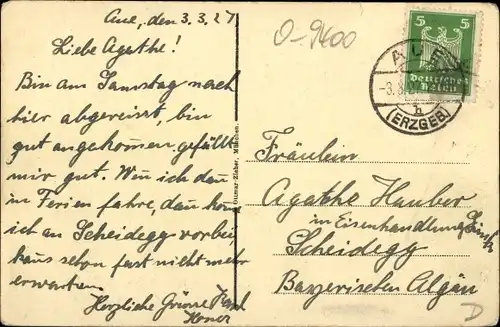 Aue, den 3.3.27
Liebe Agathe!
Bin am Samstag nach
hier abgereisst, bin
gut angekommen, gefällt
mir gut. Wen ich dan
in Ferien fahre, dan kom
ich an Scheidegg vorbei,
kaus schon fast nicht mehr
erwarten.
Herzliche Grüsse
O-9400
5 5
Deutsches Reich
AUE
-3.3.27
h
(ERZGEB.)
Ottmar Zieher, München.
Fräulein
Agathe Hauber
in Eisenhandlung
Scheidegg
Bayerischen Algäu
D